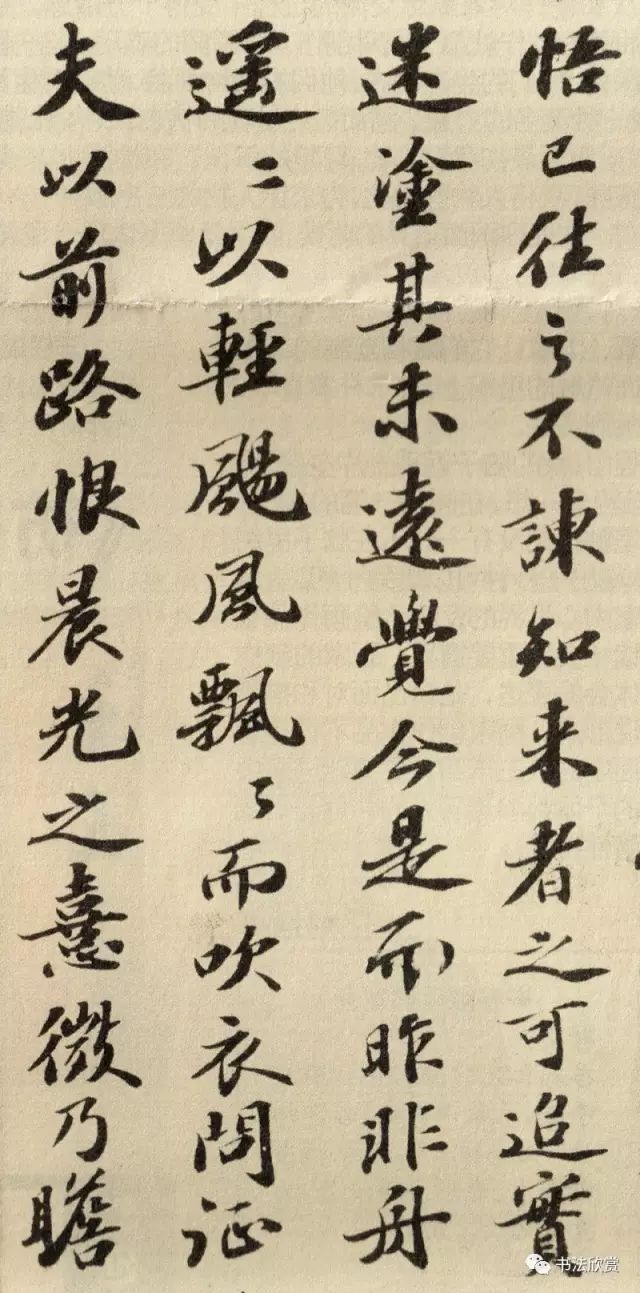 悟已往之不諫知来者之可追實
迷塗其未遠覺今是而昨非舟
遥〻以輕颺風飄〻而吹衣問征
夫以前路恨晨光之熹微乃瞻
书法欣赏